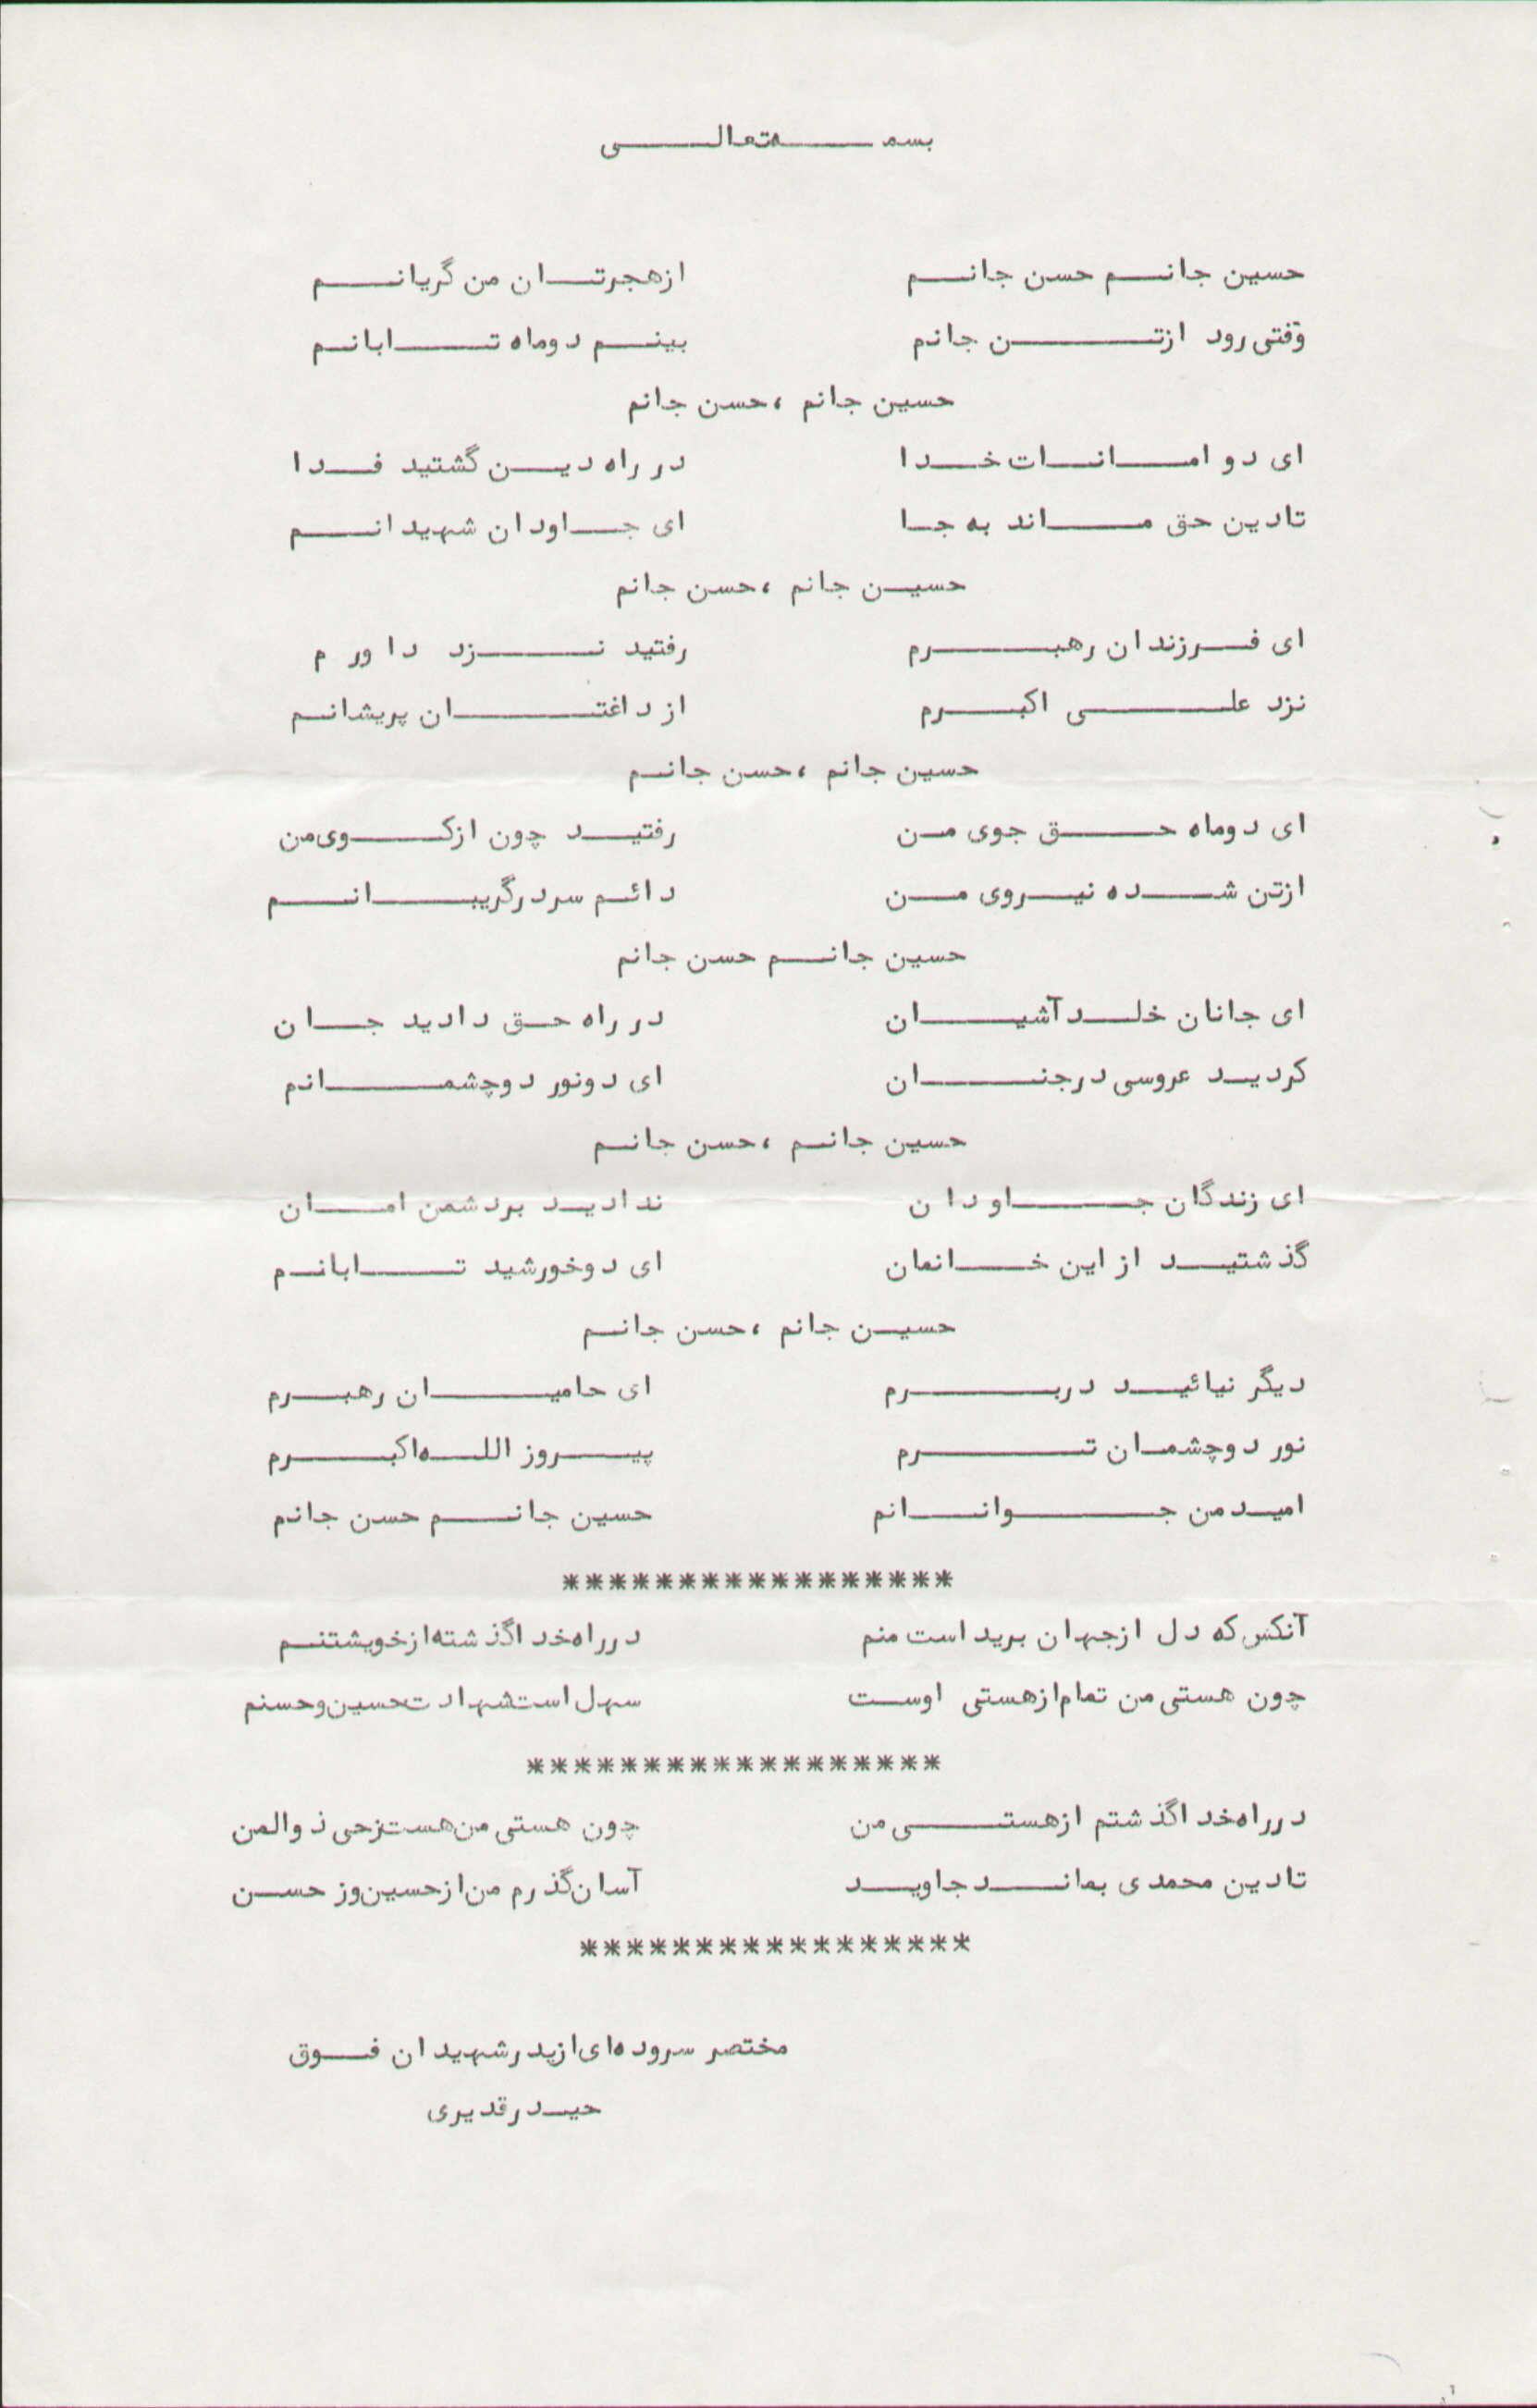 بسمه تعالی
حسین جانم حسن جانم از هجرتان من گریانم
وقتی رود از تن جانم بینم دو ماه تابانم
حسین جانم ، حسن جانم
ای دو امانات خدا در راه دین گشتید فدا
تا دین حق ماند به جا ای جاودان شهیدانم
حسین جانم ، حسن جانم
ای فرزندان رهبرم رفتید نزد داورم
نزد علی اکبرم از داغتان پریشانم
حسین جانم ، حسن جانم
ای دو ماه حق جوی من رفتید چون از کوی من
از تن شده نیروی من دائم سر در گریبانم
حسین جانم حسن جانم
ای جانان خلد آشیان در راه حق دادید جان
کردید عروسی در جنان ای دو نور دو چشمانم
حسین جانم ، حسن جانم
ای زندگان جاودان ندادید بر دشمن امان
گذشتید از این خانمان ای دو خورشید تابانم
حسین جانم ، حسن جانم
دیگر نیائید در برم ای حامیان رهبرم
نور دو چشمان ترم پیروز الله اکبرم
امید من جوانانم حسین جانم حسن جانم
*****************
آنکس که دل از جهان برید است منم در راه خدا گذشته از خویشتنم
چون هستی من تمام از هستی اوست سهل است شهادت حسین و حسنم
******************
در راه خدا گذشتم از هستی من چون هستی من هست ز حی ذوالمن
تا دین محمدی بماند جاوید آسان گذرم من از حسین وز حسن
*****************
مختصر سروده ای از پدر شهیدان فوق
حیدر قدیری